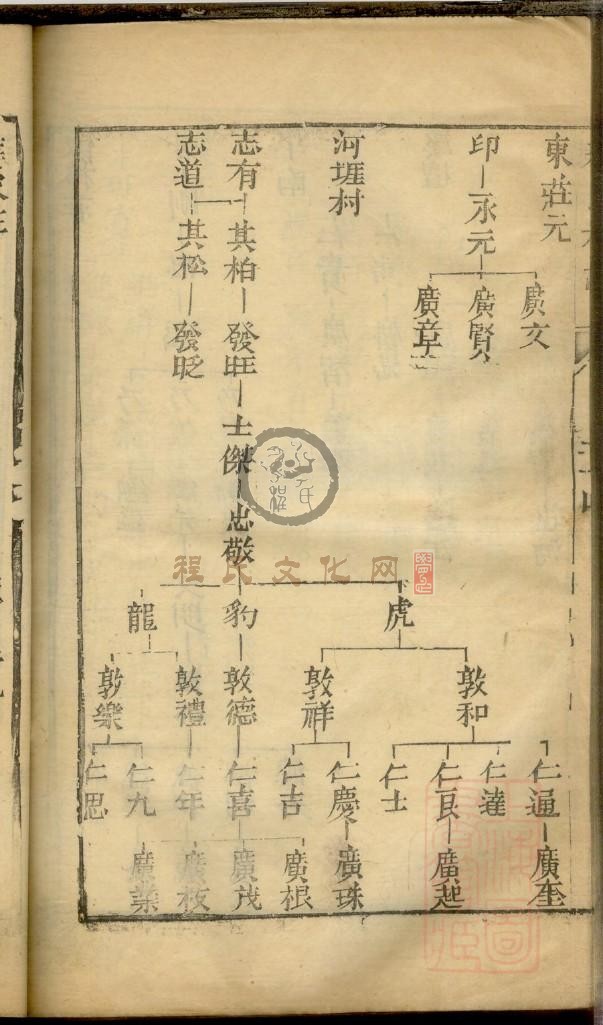 東莊元
印 永元
廣文
廣賢
廣章
河堐村
志有 其柏 發旺 士傑 忠敬
志道 其松 發貶
程氏文化网
虎
豹
龍
敦和
敦祥
敦德
敦禮
敦樂
仁通 廣奎
仁達
仁良 廣起
仁士
仁慶 廣珠
仁吉
仁喜
仁年
仁九
仁思
廣根
廣茂
廣枚
廣業